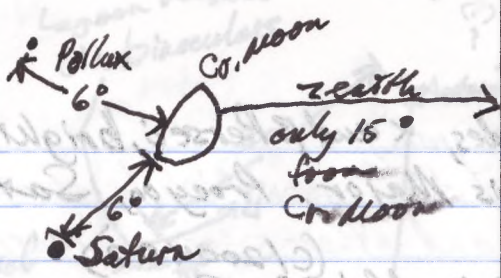 Pollux
6°
Cr. Moon
zenith
only 15°
from
Cr. Moon
6°
Saturn